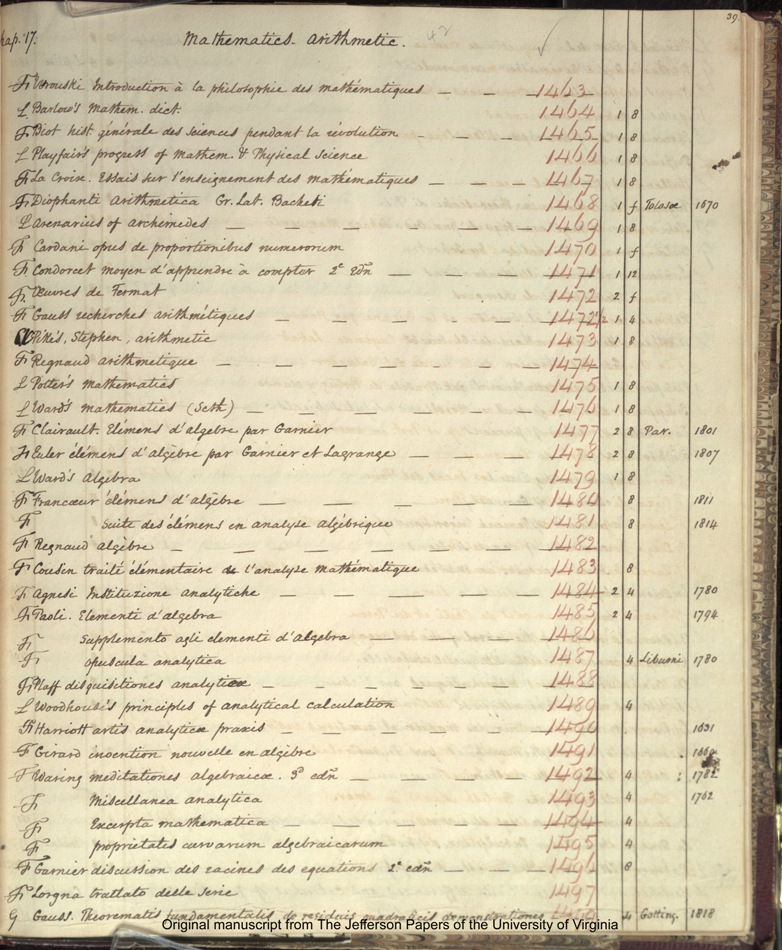 39.
Chap. 17. Mathematics. Arithmetic. 42 ✓
Fr Wronski Introduction à la philosophie des mathématiques — — 1463
L Barlow's Mathem. dict. 1464 1 8
Fr Biot hist. générale des Sciences pendant la révolution — — 1465 1 8
L Playfair's progress of Mathem. & Physical Science 1466 1 8
Fr La Croix. Essais sur l'enseignement des mathématiques — — — 1467 1 8
Fr Diophanti Arithmetica Gr. Lat. Bacheti 1468 1 f Tolosae 1670
L Arenarius of Archimedes — — — — — 1469 1 8
Fr Cardani opus de proportionibus numerorum 1470 1 f
Fr Condorcet moyen d'apprendre à compter 2e edn — — — 1471 1 12
Fr Œuvres de Fermat 1472 2 f
Fr Gauss recherches arithmétiques — — — — 1472½ 1 4
Pike's, Stephen, arithmetic 1473 1 8
Fr Regnaud arithmetique — — — — — 1474
L Potter's Mathematics 1475 1 8
L Ward's mathematics (Seth) — — — — 1476 1 8
Fr Clairault. Elemens d'algebre par Garnier 1477 2 8 Par. 1801
Fr Euler élémens d'algèbre par Garnier et Lagrange — — — 1478 2 8 1807
L Ward's Algebra 1479 1 8
Fr Francœur élémens d'algèbre — — — — 1480 8 1811
Fr Suite des élémens en analyse algébrique 1481 8 1814
Fr Regnaud algèbre — — — — — — 1482
Fr Cousin traité élémentaire de l'analyse mathématique 1483 8
Fr Agnesi Instituzione analytiche — — — — 1484 2 4 1780
Fr Paoli. Elementi d'algebra 1485 2 4 1794
Fr Supplemento agli elementi d'algebra — — — 1486
Fr opuscula analytica 1487 4 Liburni 1780
Fr Pfaff disquisitiones analyticae — — — — 1488
L Woodhouse's principles of analytical calculation 1489 4
Fr Harriott artis analyticæ praxis — — — — 1490 1631
Fr Girard invention nouvelle en algèbre 1491
Fr Waring meditationes algebraicæ. 3d edn — — — — 1492 4 : 1782
Fr Miscellanea analytica 1493 4 1762
Fr Excerpta mathematica — — — — 1494 4
Fr proprietatis curvarum algebraicarum 1495 4
Fr Garnier discussion des racines des equations 2e edn — — 1496 8
Fr Lorgna trattato delle serie 1497
G Gauss. Theorematis fundamentalis de residuis quadraticis demonstrationes 4 Gotting. 1818
Original manuscript from The Jefferson Papers of the University of Virginia